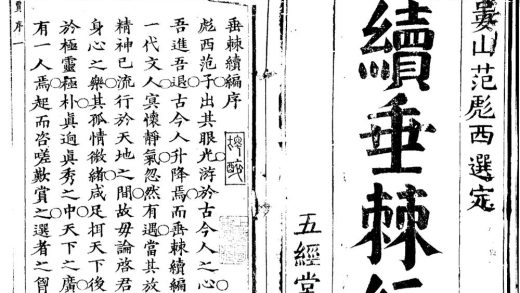 婁山范彪西選定
續垂棘
五經堂
垂棘續編序
彪西范子出其眼光游於古今人之心
吾進吾退古今人升降焉而垂棘續編
一代文人冥懷靜氣忽然有遇當其放
精神已流行於天地之間故毋論啓君
身心之樂其孤情微緒咸足抇天下後
於極靈極朴真逈真秀之中天下之廣
有一人焉起而咨嗟歎賞之選者之胷
序一